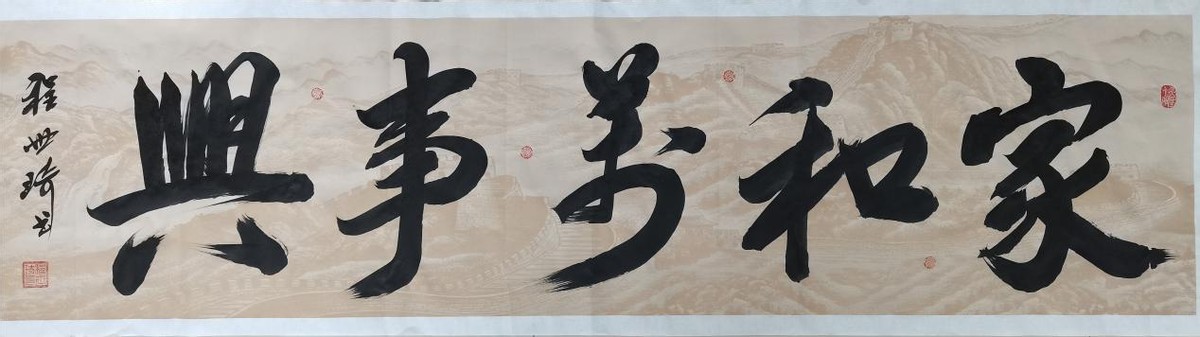 家和萬事興
程世琦书